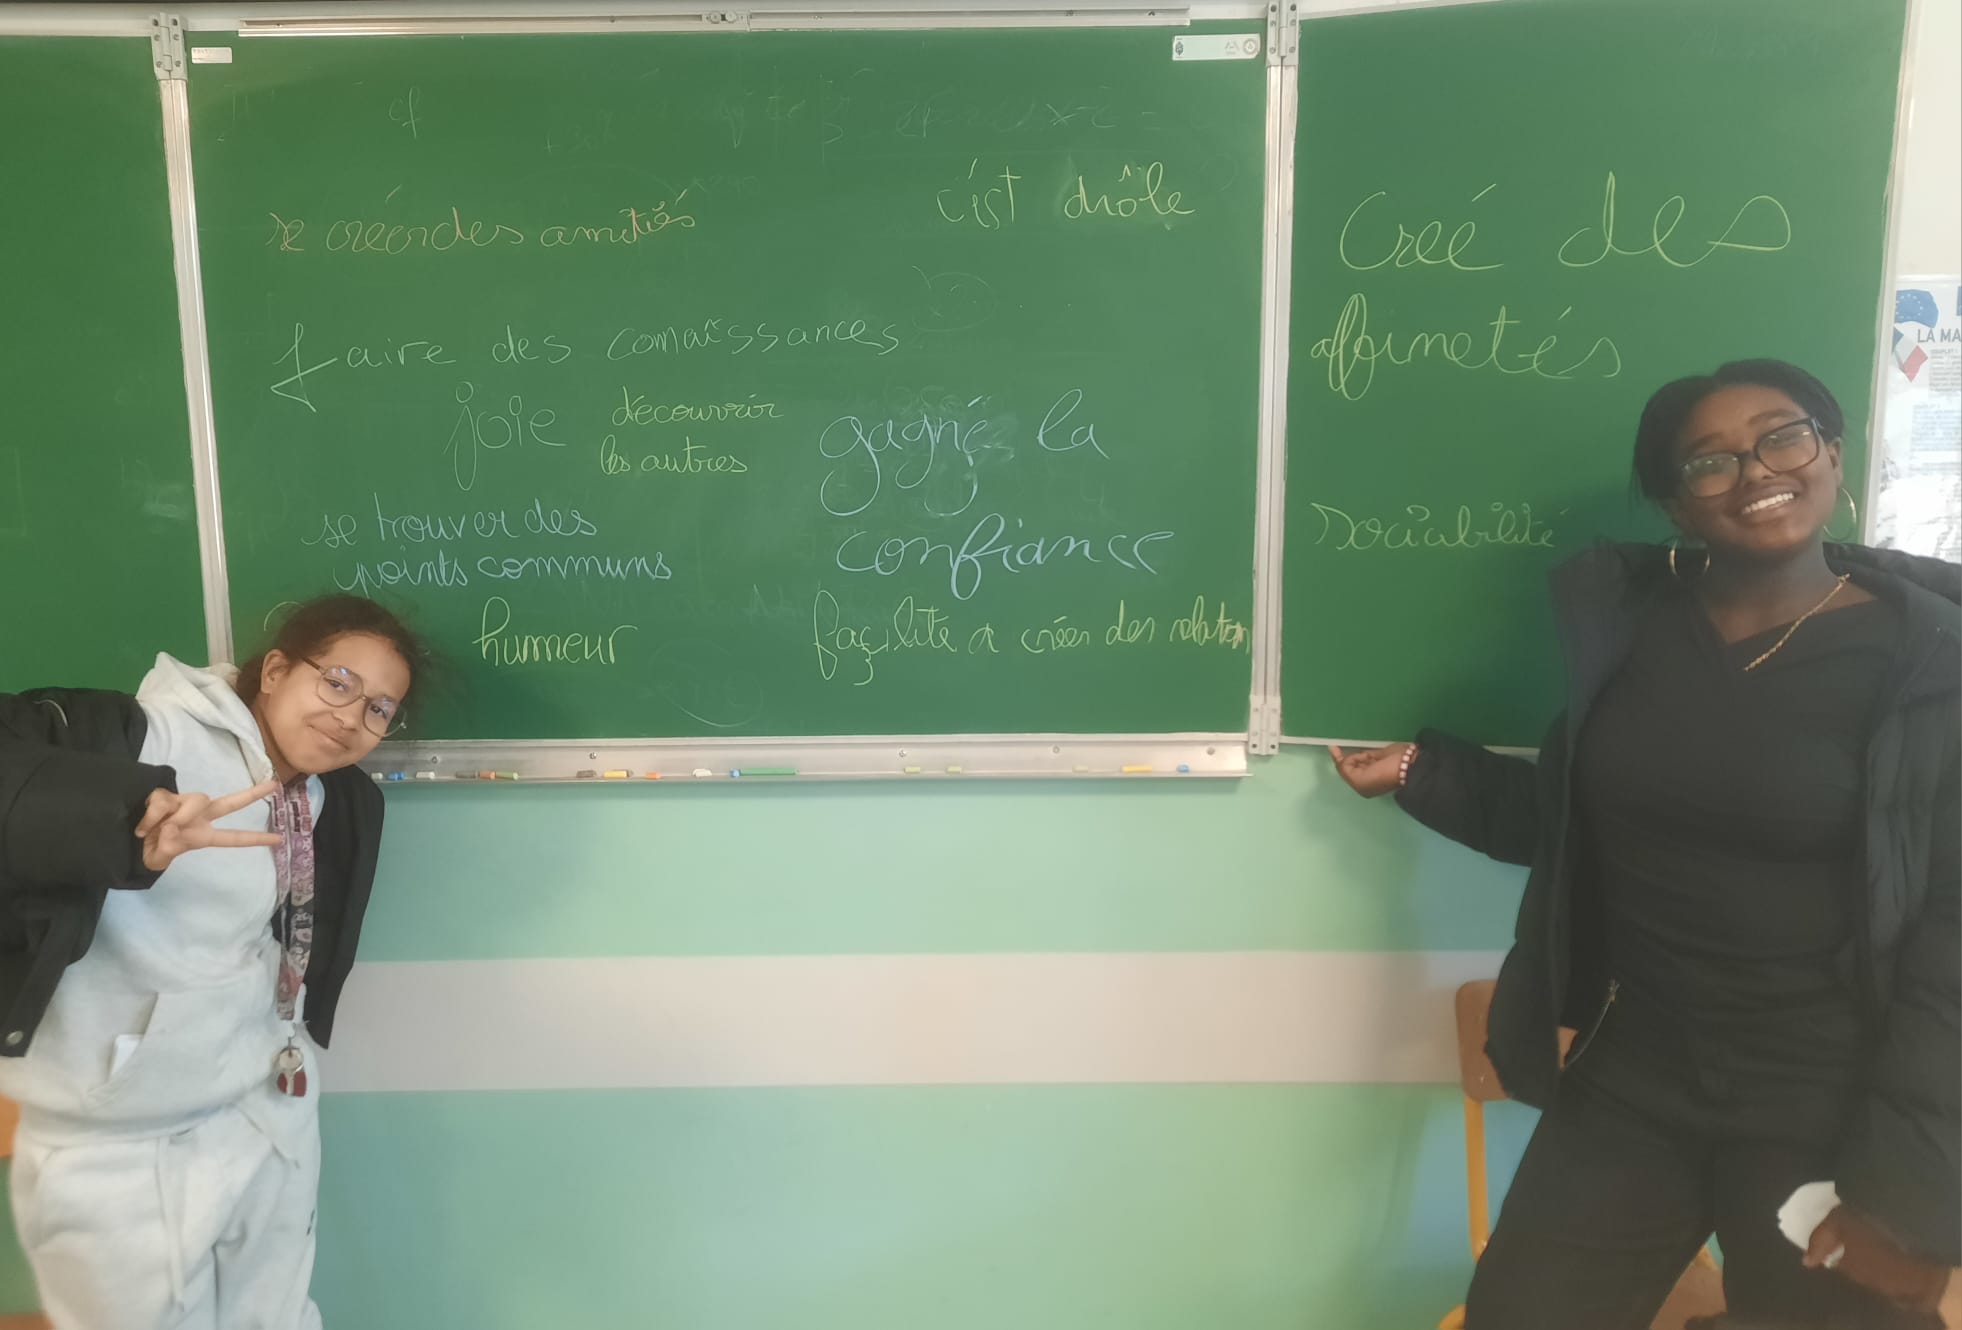 se créer des amitiés
c'est drôle
faire des connaissances
joie
découvrir
les autres
gagné la
confiance
se trouver des
points communs
humeur
façilité a créer des relation
Creé des
affinetés
sociabilité
LA MA